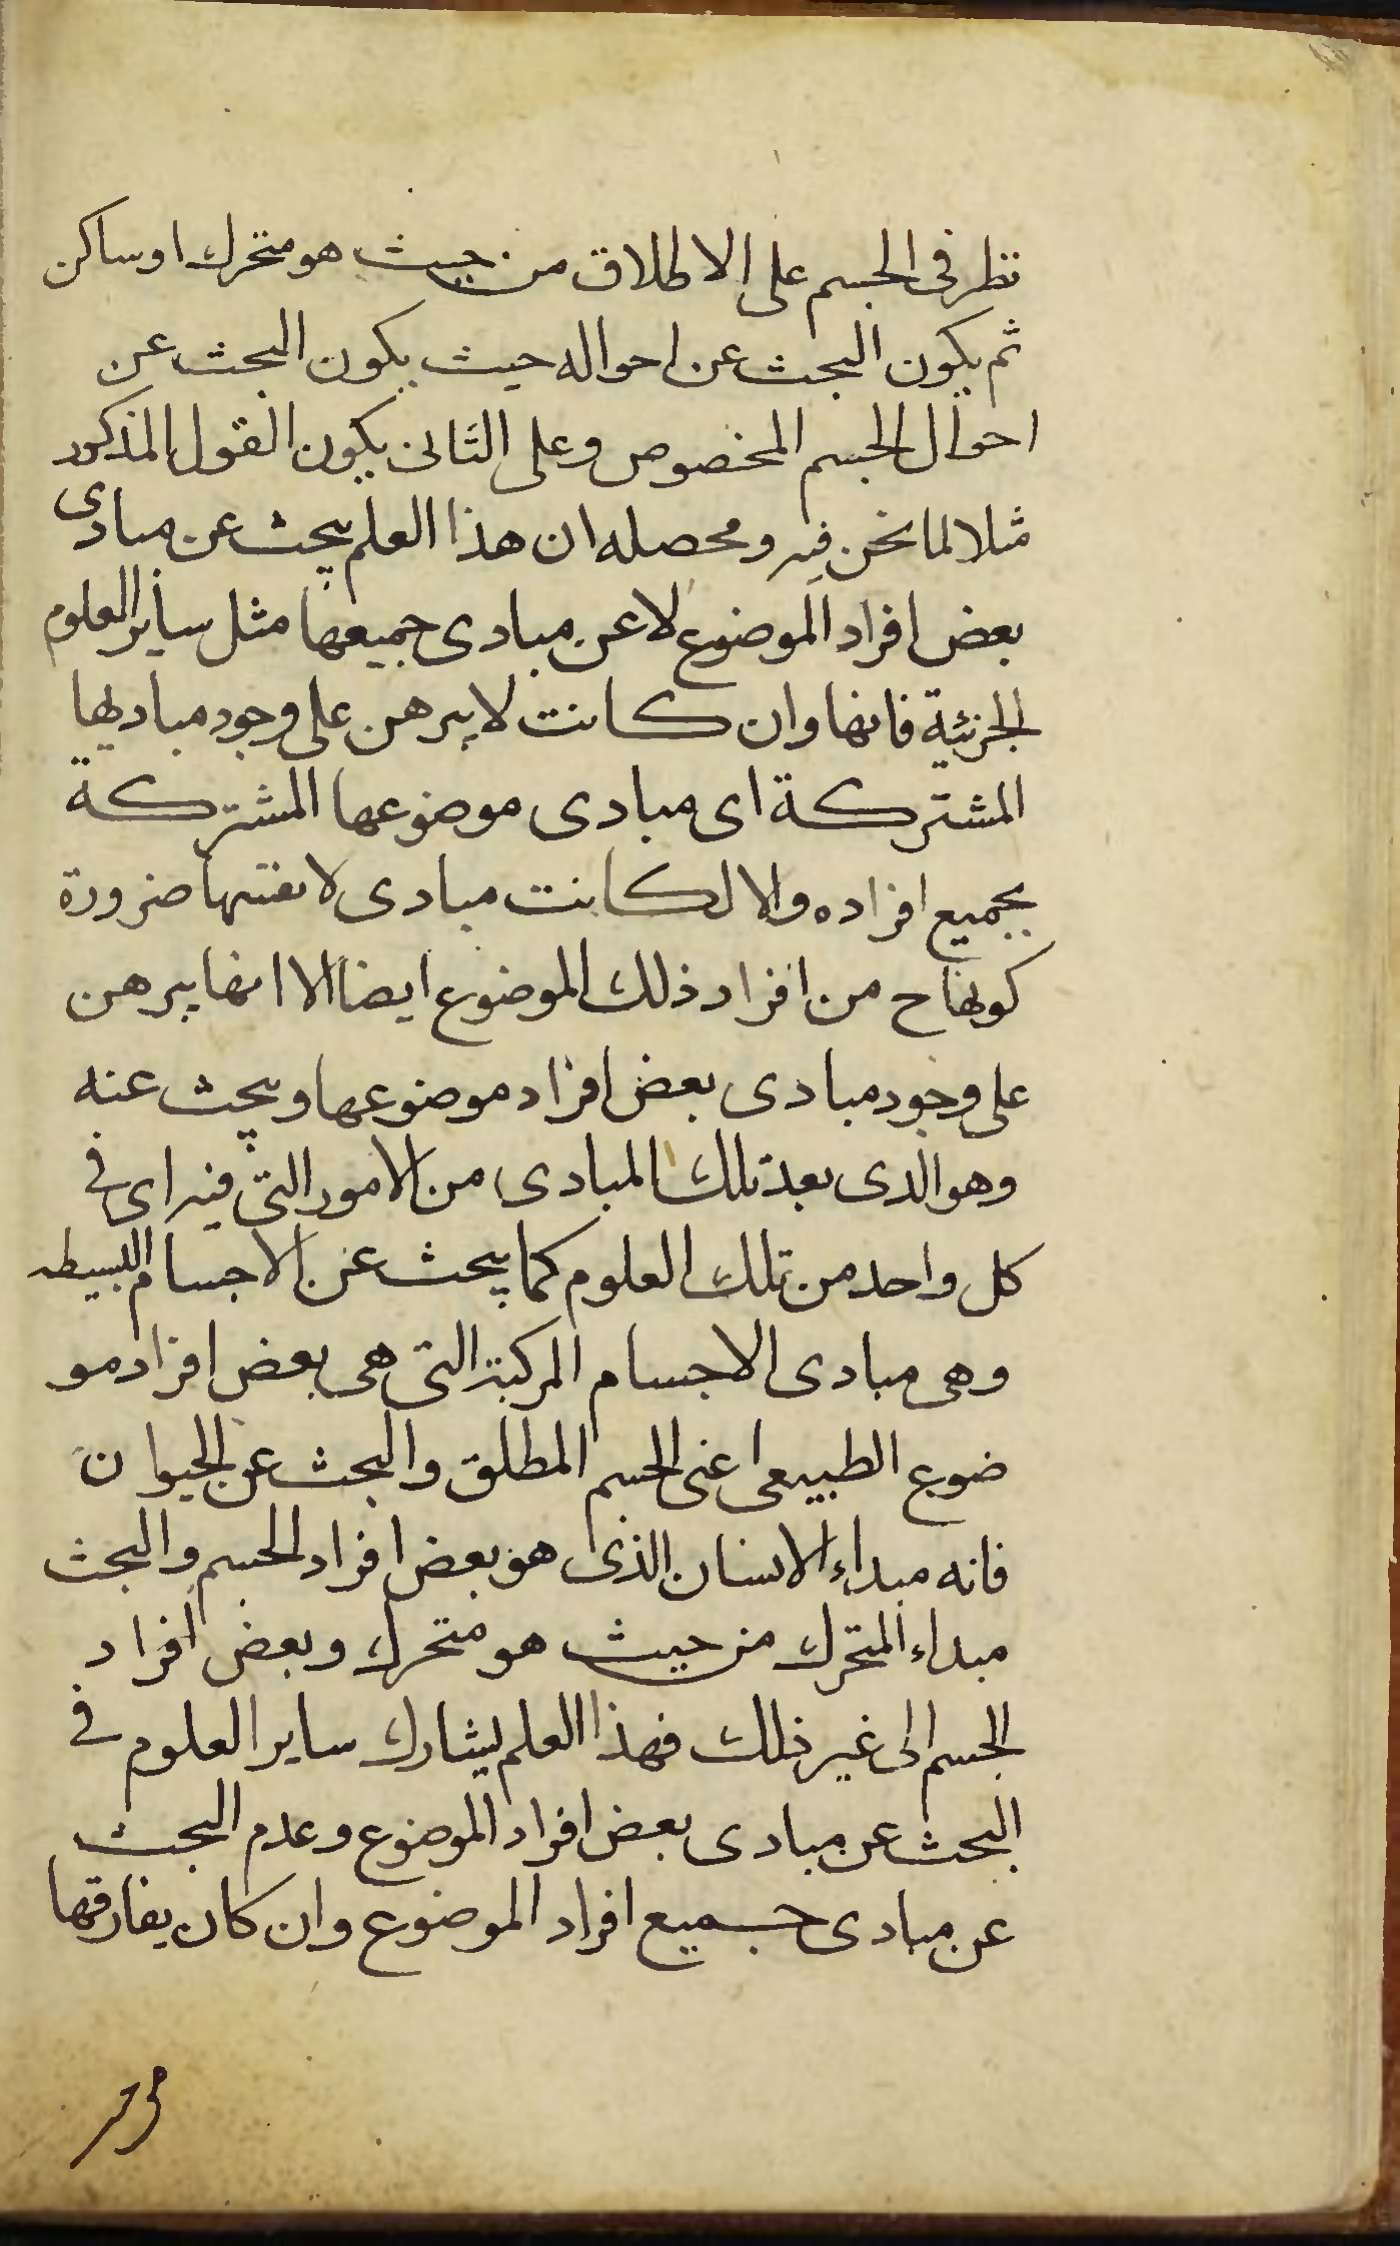 نظر فى الجسم على الاطلاق من حيث هو متحرك او ساكن
ثم يكون البحث عن احواله حيث يكون البحث عن
احوال الجسم المخصوص وعلى الثانى يكون القول المذكور
مثلا لما نحن فيه ومحصله ان هذا العلم يبحث عن مبادى
بعض افراد الموضوع لا عن مبادى جميعها مثل ساير العلوم
الجزئية فانها وان كانت لا يبرهن على وجود مباديها
المشتركة اى مبادى موضوعها المشتركة
بجميع افراده والا لكانت مبادى لانفسها ضرورة
كونها ح من افراد ذلك الموضوع ايضا الا انها يبرهن
على وجود مبادى بعض افراد موضوعها ويبحث عنه
وهو الذى بعد تلك المبادى من الامور التى فيه اى فى
كل واحد من تلك العلوم كما يبحث عن الاجسام البسيطه
وهى مبادى الاجسام المركبة التى هى بعض افراد مو
ضوع الطبيعى اعنى الجسم المطلق والبحث عن الحيوان
فانه مبداء الانسان الذى هو بعض افراد الجسم والبحث
مبداء المتحرك من حيث هو متحرك وبعض افراد
الجسم الى غير ذلك فهذا العلم يشارك ساير العلوم فى
البحث عن مبادى بعض افراد الموضوع وعدم البحث
عن مبادى جميع افراد الموضوع وان كان يفارقها